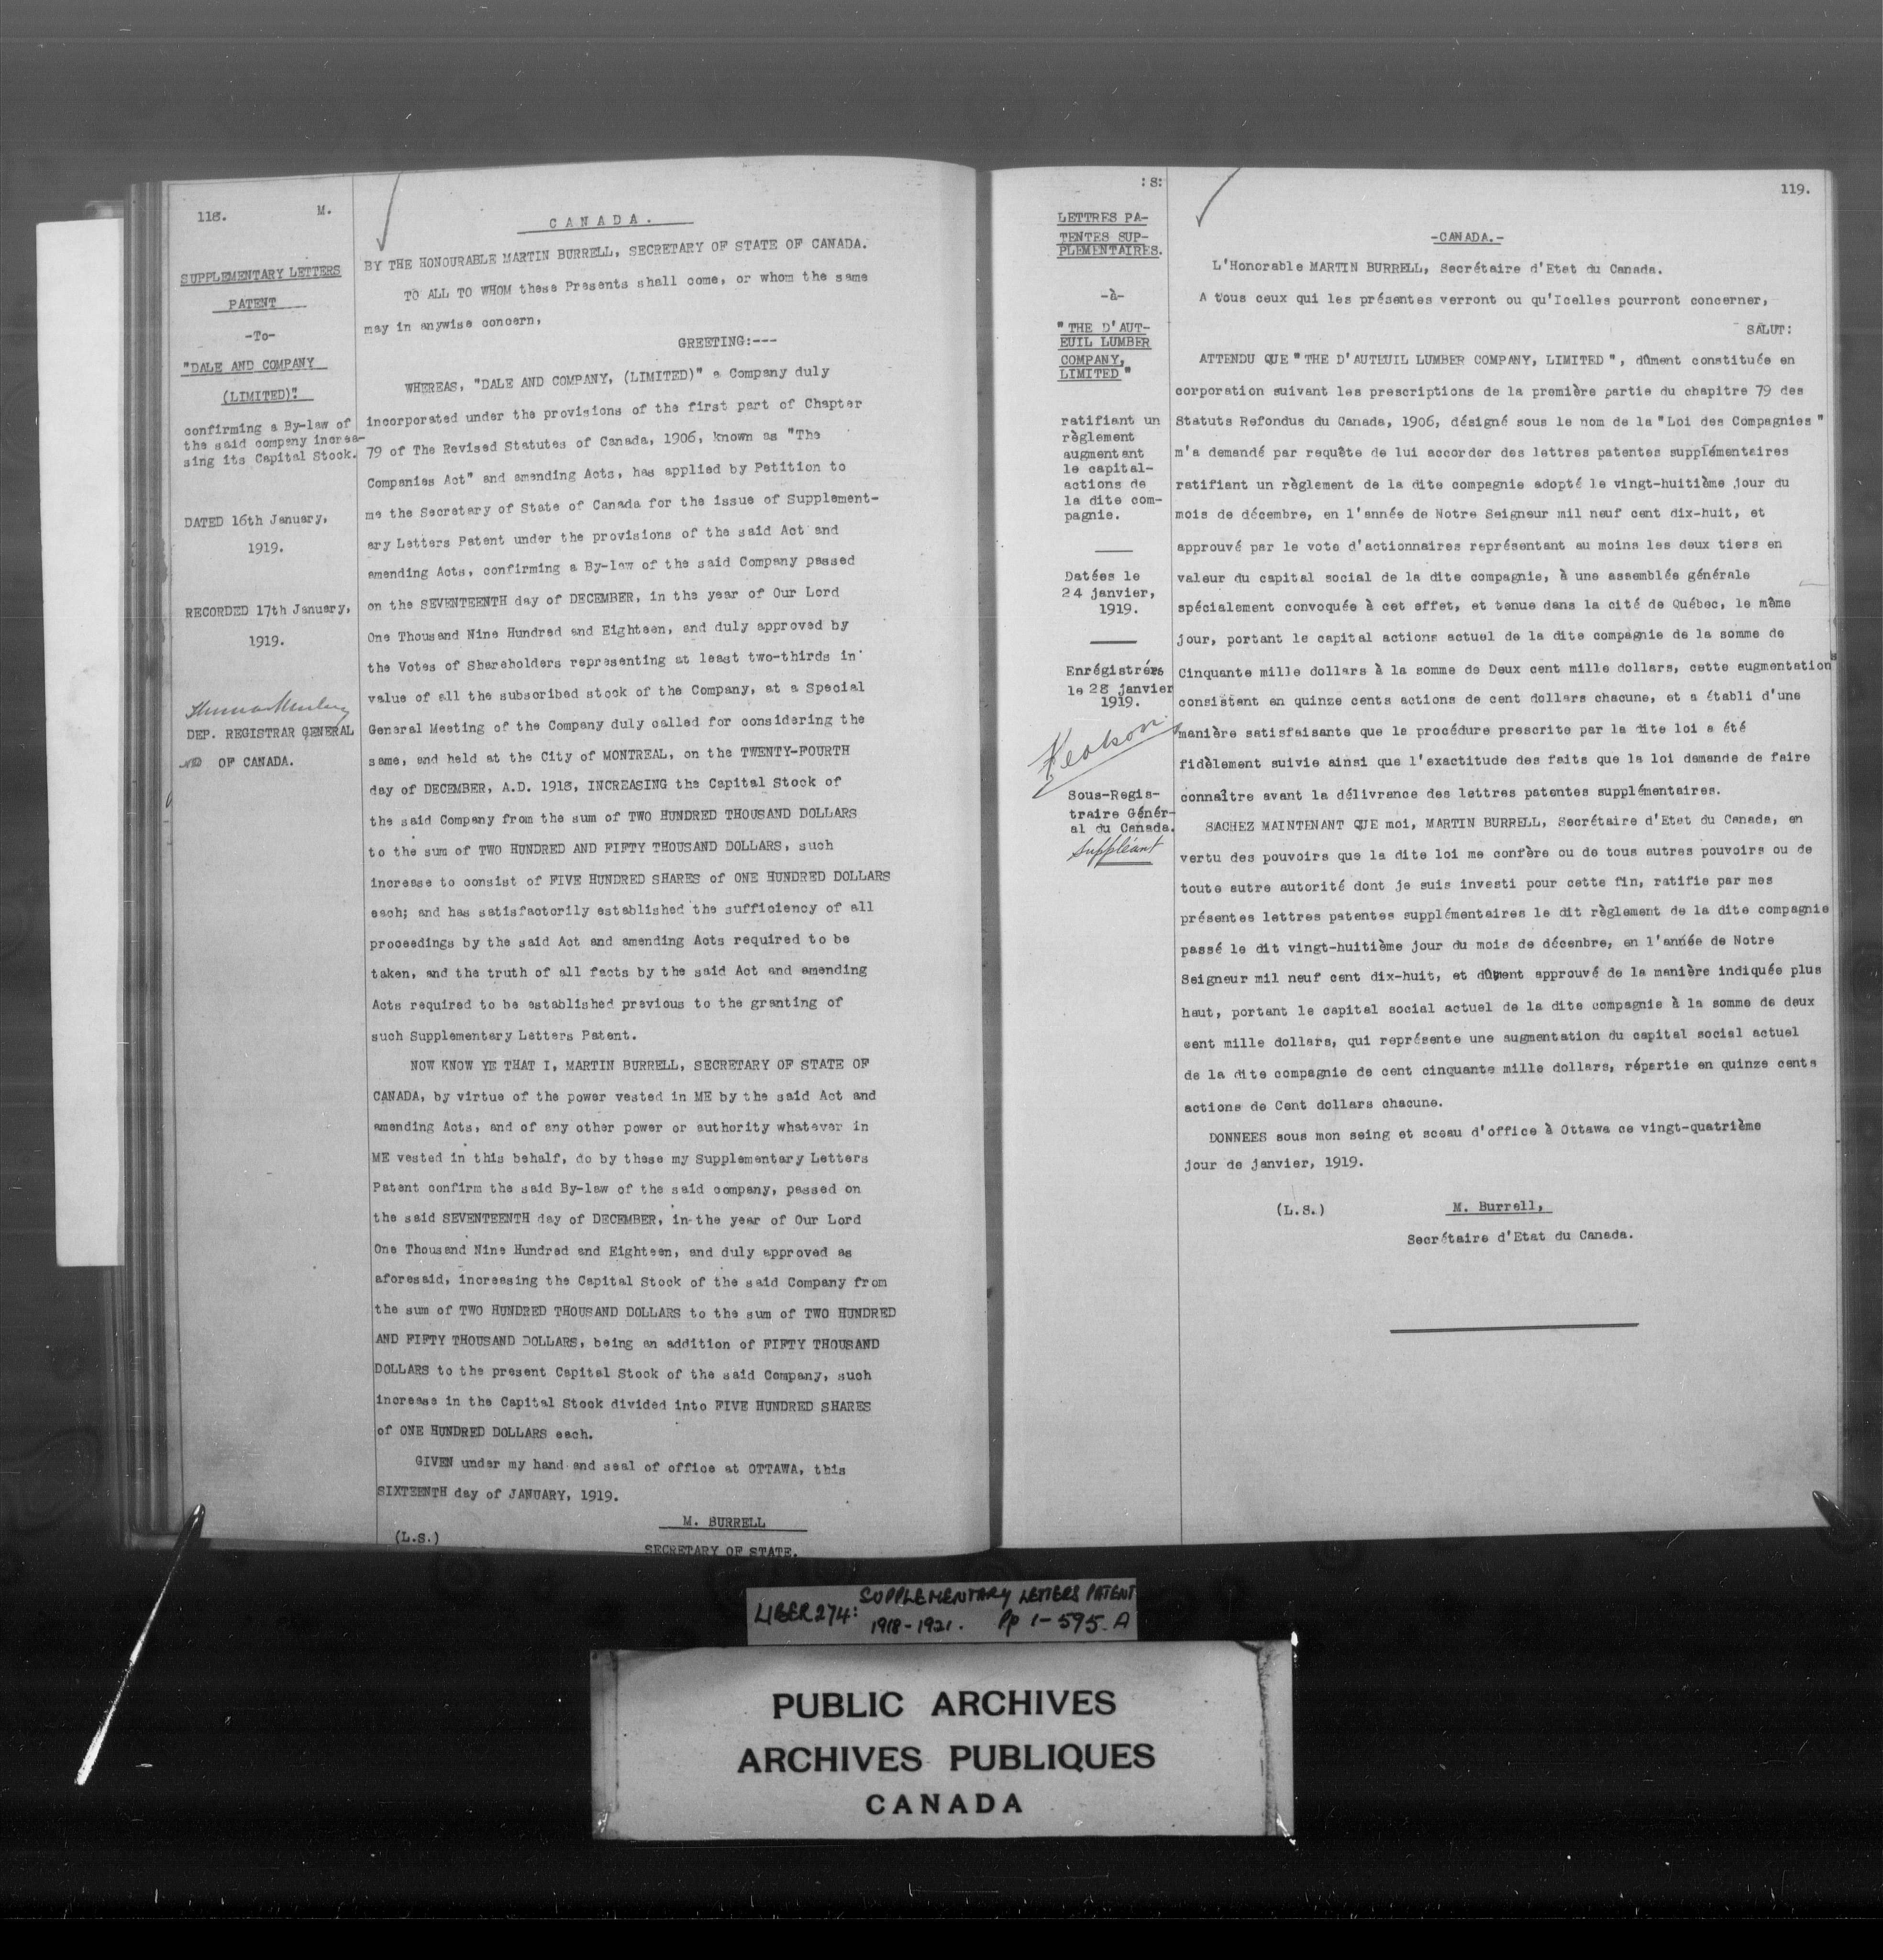 118. M.
SUPPLEMENTARY LETTERS
PATENT
-To-
"DALE AND COMPANY
(LIMITED)".
confirming a By-law of
the said company increa-
sing its Capital Stock.
DATED 16th January,
1919.
RECORDED 17th January,
1919.
DEP. REGISTRAR GENERAL
OF CANADA.
CANADA.
BY THE HONOURABLE MARTIN BURRELL, SECRETARY OF STATE OF CANADA.
TO ALL TO WHOM these Presents shall come, or whom the same
may in anywise concern,
GREETING:---
WHEREAS, "DALE AND COMPANY, (LIMITED)" a Company duly
incorporated under the provisions of the first part of Chapter
79 of The Revised Statutes of Canada, 1906, known as "The
Companies Act" and amending Acts, has applied by Petition to
me the Secretary of State of Canada for the issue of Supplement-
ary Letters Patent under the provisions of the said Act and
amending Acts, confirming a By-law of the said Company passed
on the SEVENTEENTH day of DECEMBER, in the year of Our Lord
One Thousand Nine Hundred and Eighteen, and duly approved by
the Votes of Shareholders representing at least two-thirds in
value of all the subscribed stock of the Company, at a Special
General Meeting of the Company duly called for considering the
same, and held at the City of MONTREAL, on the TWENTY-FOURTH
day of DECEMBER, A.D. 1918, INCREASING the Capital Stock of
the said Company from the sum of TWO HUNDRED THOUSAND DOLLARS
to the sum of TWO HUNDRED AND FIFTY THOUSAND DOLLARS, such
increase to consist of FIVE HUNDRED SHARES of ONE HUNDRED DOLLARS
each; and has satisfactorily established the sufficiency of all
proceedings by the said Act and amending Acts required to be
taken, and the truth of all facts by the said Act and amending
Acts required to be established previous to the granting of
such Supplementary Letters Patent.
NOW KNOW YE THAT I, MARTIN BURRELL, SECRETARY OF STATE OF
CANADA, by virtue of the power vested in ME by the said Act and
amending Acts, and of any other power or authority whatever in
ME vested in this behalf, do by these my Supplementary Letters
Patent confirm the said By-law of the said company, passed on
the said SEVENTEENTH day of DECEMBER, in the year of Our Lord
One Thousand Nine Hundred and Eighteen, and duly approved as
aforesaid, increasing the Capital Stock of the said Company from
the sum of TWO HUNDRED THOUSAND DOLLARS to the sum of TWO HUNDRED
AND FIFTY THOUSAND DOLLARS, being an addition of FIFTY THOUSAND
DOLLARS to the present Capital Stock of the said Company, such
increase in the Capital Stock divided into FIVE HUNDRED SHARES
of ONE HUNDRED DOLLARS each.
GIVEN under my hand and seal of office at OTTAWA, this
SIXTEENTH day of JANUARY, 1919.
M. BURRELL
(L.S.)
SECRETARY OF STATE.
:S:
119.
LETTRES PA-
TENTES SUP-
PLEMENTAIRES.
-à-
"THE D'AUT-
EUIL LUMBER
COMPANY,
LIMITED"
ratifiant un
règlement
augmentant
le capital-
actions de
la dite com-
pagnie.
Datées le
24 janvier,
1919.
Enrégistrées
le 28 janvier
1919.
Sous-Regis-
traire Génér-
al du Canada.
Suppléant
-CANADA.-
L'Honorable MARTIN BURRELL, Secrétaire d'Etat du Canada.
A tous ceux qui les présentes verront ou qu'Icelles pourront concerner,
SALUT:
ATTENDU QUE "THE D'AUTEUIL LUMBER COMPANY, LIMITED", dûment constituée en
corporation suivant les prescriptions de la première partie du chapitre 79 des
Statuts Refondus du Canada, 1906, désigné sous le nom de la "Loi des Compagnies"
m'a demandé par requête de lui accorder des lettres patentes supplémentaires
ratifiant un règlement de la dite compagnie adopté le vingt-huitième jour du
mois de décembre, en l'année de Notre Seigneur mil neuf cent dix-huit, et
approuvé par le vote d'actionnaires représentant au moins les deux tiers en
valeur du capital social de la dite compagnie, à une assemblée générale
spécialement convoquée à cet effet, et tenue dans la cité de Québec, le même
jour, portant le capital actions actuel de la dite compagnie de la somme de
Cinquante mille dollars à la somme de Deux cent mille dollars, cette augmentation
consistant en quinze cents actions de cent dollars chacune, et a établi d'une
manière satisfaisante que la procédure prescrite par la dite loi a été
fidèlement suivie ainsi que l'exactitude des faits que la loi demande de faire
connaître avant la délivrance des lettres patentes supplémentaires.
SACHEZ MAINTENANT QUE moi, MARTIN BURRELL, Secrétaire d'Etat du Canada, en
vertu des pouvoirs que la dite loi me confère ou de tous autres pouvoirs ou de
toute autre autorité dont je suis investi pour cette fin, ratifie par mes
présentes lettres patentes supplémentaires le dit règlement de la dite compagnie
passé le dit vingt-huitième jour du mois de décenbre, en l'année de Notre
Seigneur mil neuf cent dix-huit, et dûment approuvé de la manière indiquée plus
haut, portant le capital social actuel de la dite compagnie à la somme de deux
cent mille dollars, qui représente une augmentation du capital social actuel
de la dite compagnie de cent cinquante mille dollars, répartie en quinze cents
actions de Cent dollars chacune.
DONNEES sous mon seing et sceau d'office à Ottawa ce vingt-quatrième
jour de janvier, 1919.
(L.S.) M. Burrell,
Secrétaire d'Etat du Canada.
LIBER 274: SUPPLEMENTARY LETTERS PATENT
1918-1921. Pp 1-595.A
PUBLIC ARCHIVES
ARCHIVES PUBLIQUES
CANADA